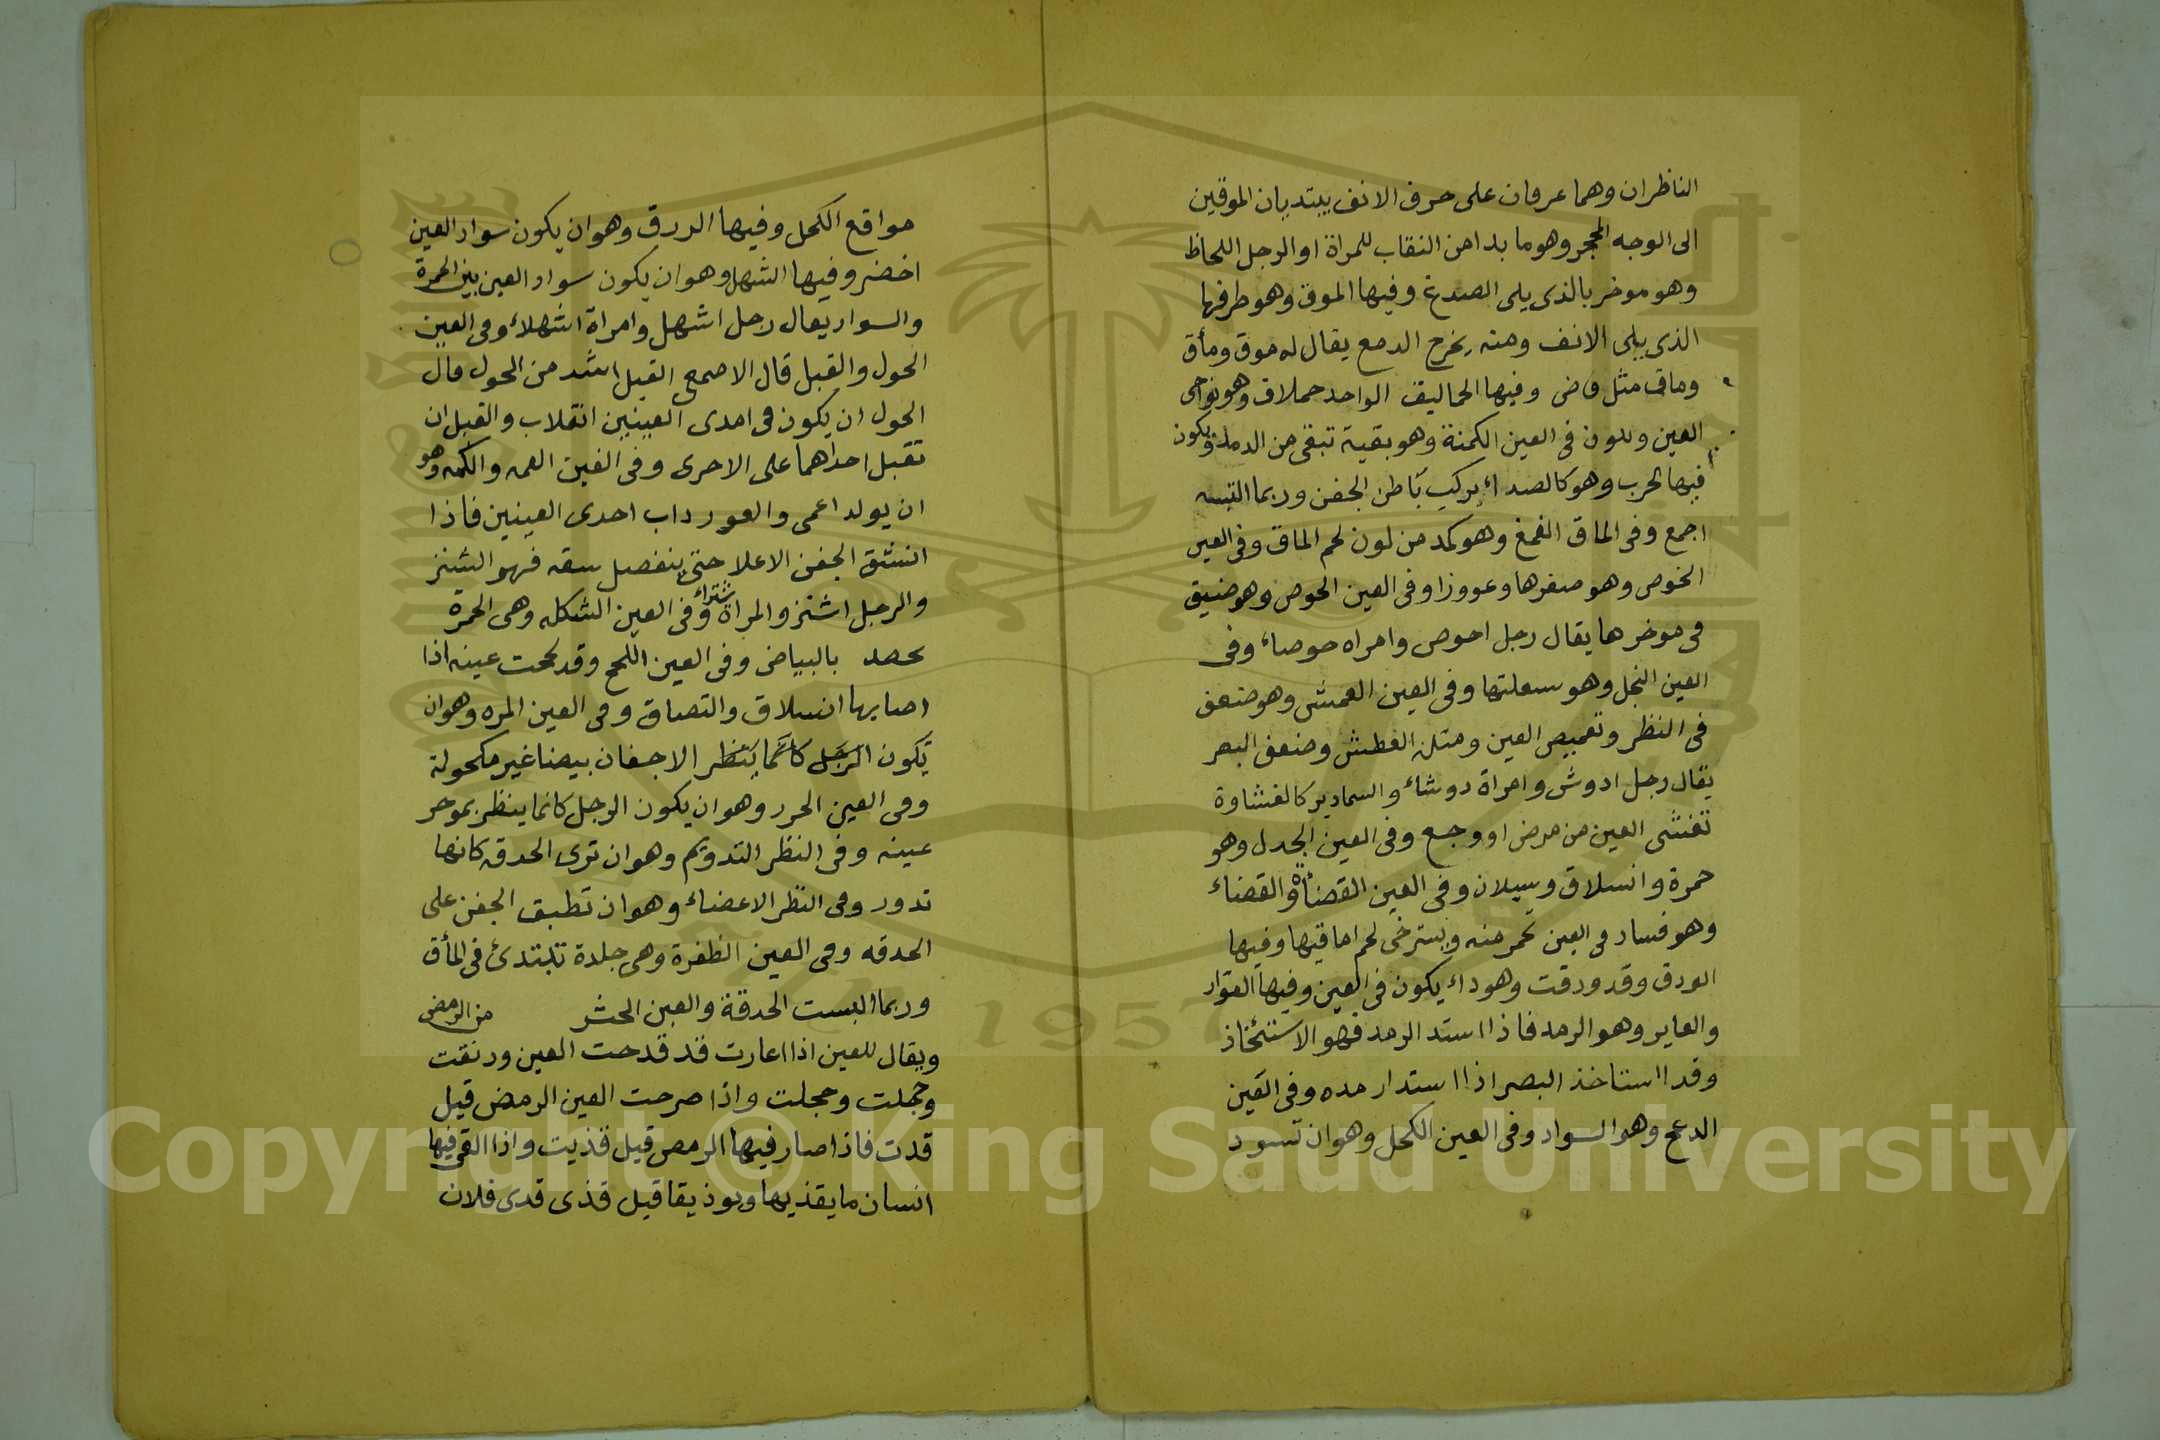 الناظران وهما عرقان على حرف الانف يبتديان الموقين
الى الوجه المحجر وهو ما بدا من النقاب للمراة او الرجل اللحاظ
وهو موخر بالذى يلى الصدغ وفيها الموق وهو طرفها
الذى يلى الانف ومنه يخرج الدمع يقال له موق ومأق
وماق مثل قاض وفيها الحماليق الواحد حملاق وهو نواحى
العين ويكون فى العين الكمنة وهو بقية تبقى من الرمد ويكون
فيها الجرب وهو كالصداء يركب باطن الجفن وربما البسه
اجمع وفى الماق الغمغ وهو كمد من لون لحم الماق وفى العين
الخوص وهو صغرها وغوورا وفى العين الحوص وهو ضيق
فى موخرها يقال رجل احوص وامراه حوصاء وفى
العين النجل وهو سعلتها وفى العين العمش وهو ضعف
فى النظر وتغميص العين ومثله الغطش وضعف البصر
يقال رجل ادوش وامراة دوشاء والسمادير كالغشاوة
تغشى العين من مرض او وجع وفى العين الجدل وهو
حمرة وانسلاق وسيلان وفى العين القضأة والقضاء
وهو فساد فى العين تحمر منه ويسترخى لحم اماقيها وفيها
الودق وقد ودقت وهو داء يكون فى العين وفيها العوار
والعاير وهو الرمد فاذا استد الرمد فهو الاستئخاذ
وقد استاخذ البصر اذا استدار مده وفى العين
الدعج وهو السواد وفى العين الكحل وهو ان تسود
مواقع الكحل وفيها الزرق وهو ان يكون سواد العين
اخضر وفيها الشهل وهو ان يكون سواد العين بين الحمرة
والسواد يقال رجل اشهل وامراة اشهلاء وفى العين
الحول والقبل قال الاصمعى القبل اشد من الحول قال
الحول ان يكون فى احدى العينين انقلاب والقبل ان
تقبل احداهما على الاخرى وفى العين العمه والكمه وهو
ان يولد اعمى والعور داب احدى العينين فاذا
انشق الجفن الاعلا حتى ينفصل سقه فهو الشتر
والرجل اشتر والمراة شتراء وفى العين الشكله وهى الحمرة
بالبياض وفى العين اللحح وقد لححت عينه اذا
اصابها انسلاق والتصاق وفى العين المره وهو ان
يكون الرجل كانما ينظر الاجفان بيضا غير مكحولة
وفى العين الخزر وهو ان يكون الرجل كانما ينظر بموخر
عينه وفى النظر التدويم وهو ان ترى الحدقه كانها
تدور وفى النظر الاغضاء وهو ان تطبق الجفن على
الحدقه وفى العين الظفرة وهى جلدة تبتدئ فى المأق
وربما البست الحدقة والعين الحثر من الرمص
ويقال للعين اذا غارت قد قدحت العين ودنقت
وحجلت وحجلت واذا صرحت العين الرمض قيل
قدت فاذا صار فيها الرمص قيل قذيت واذا القى فيها
انسان ما يقذيها ويوذيها قيل قذى قدى فلان
Copyright © King Saud University
1957